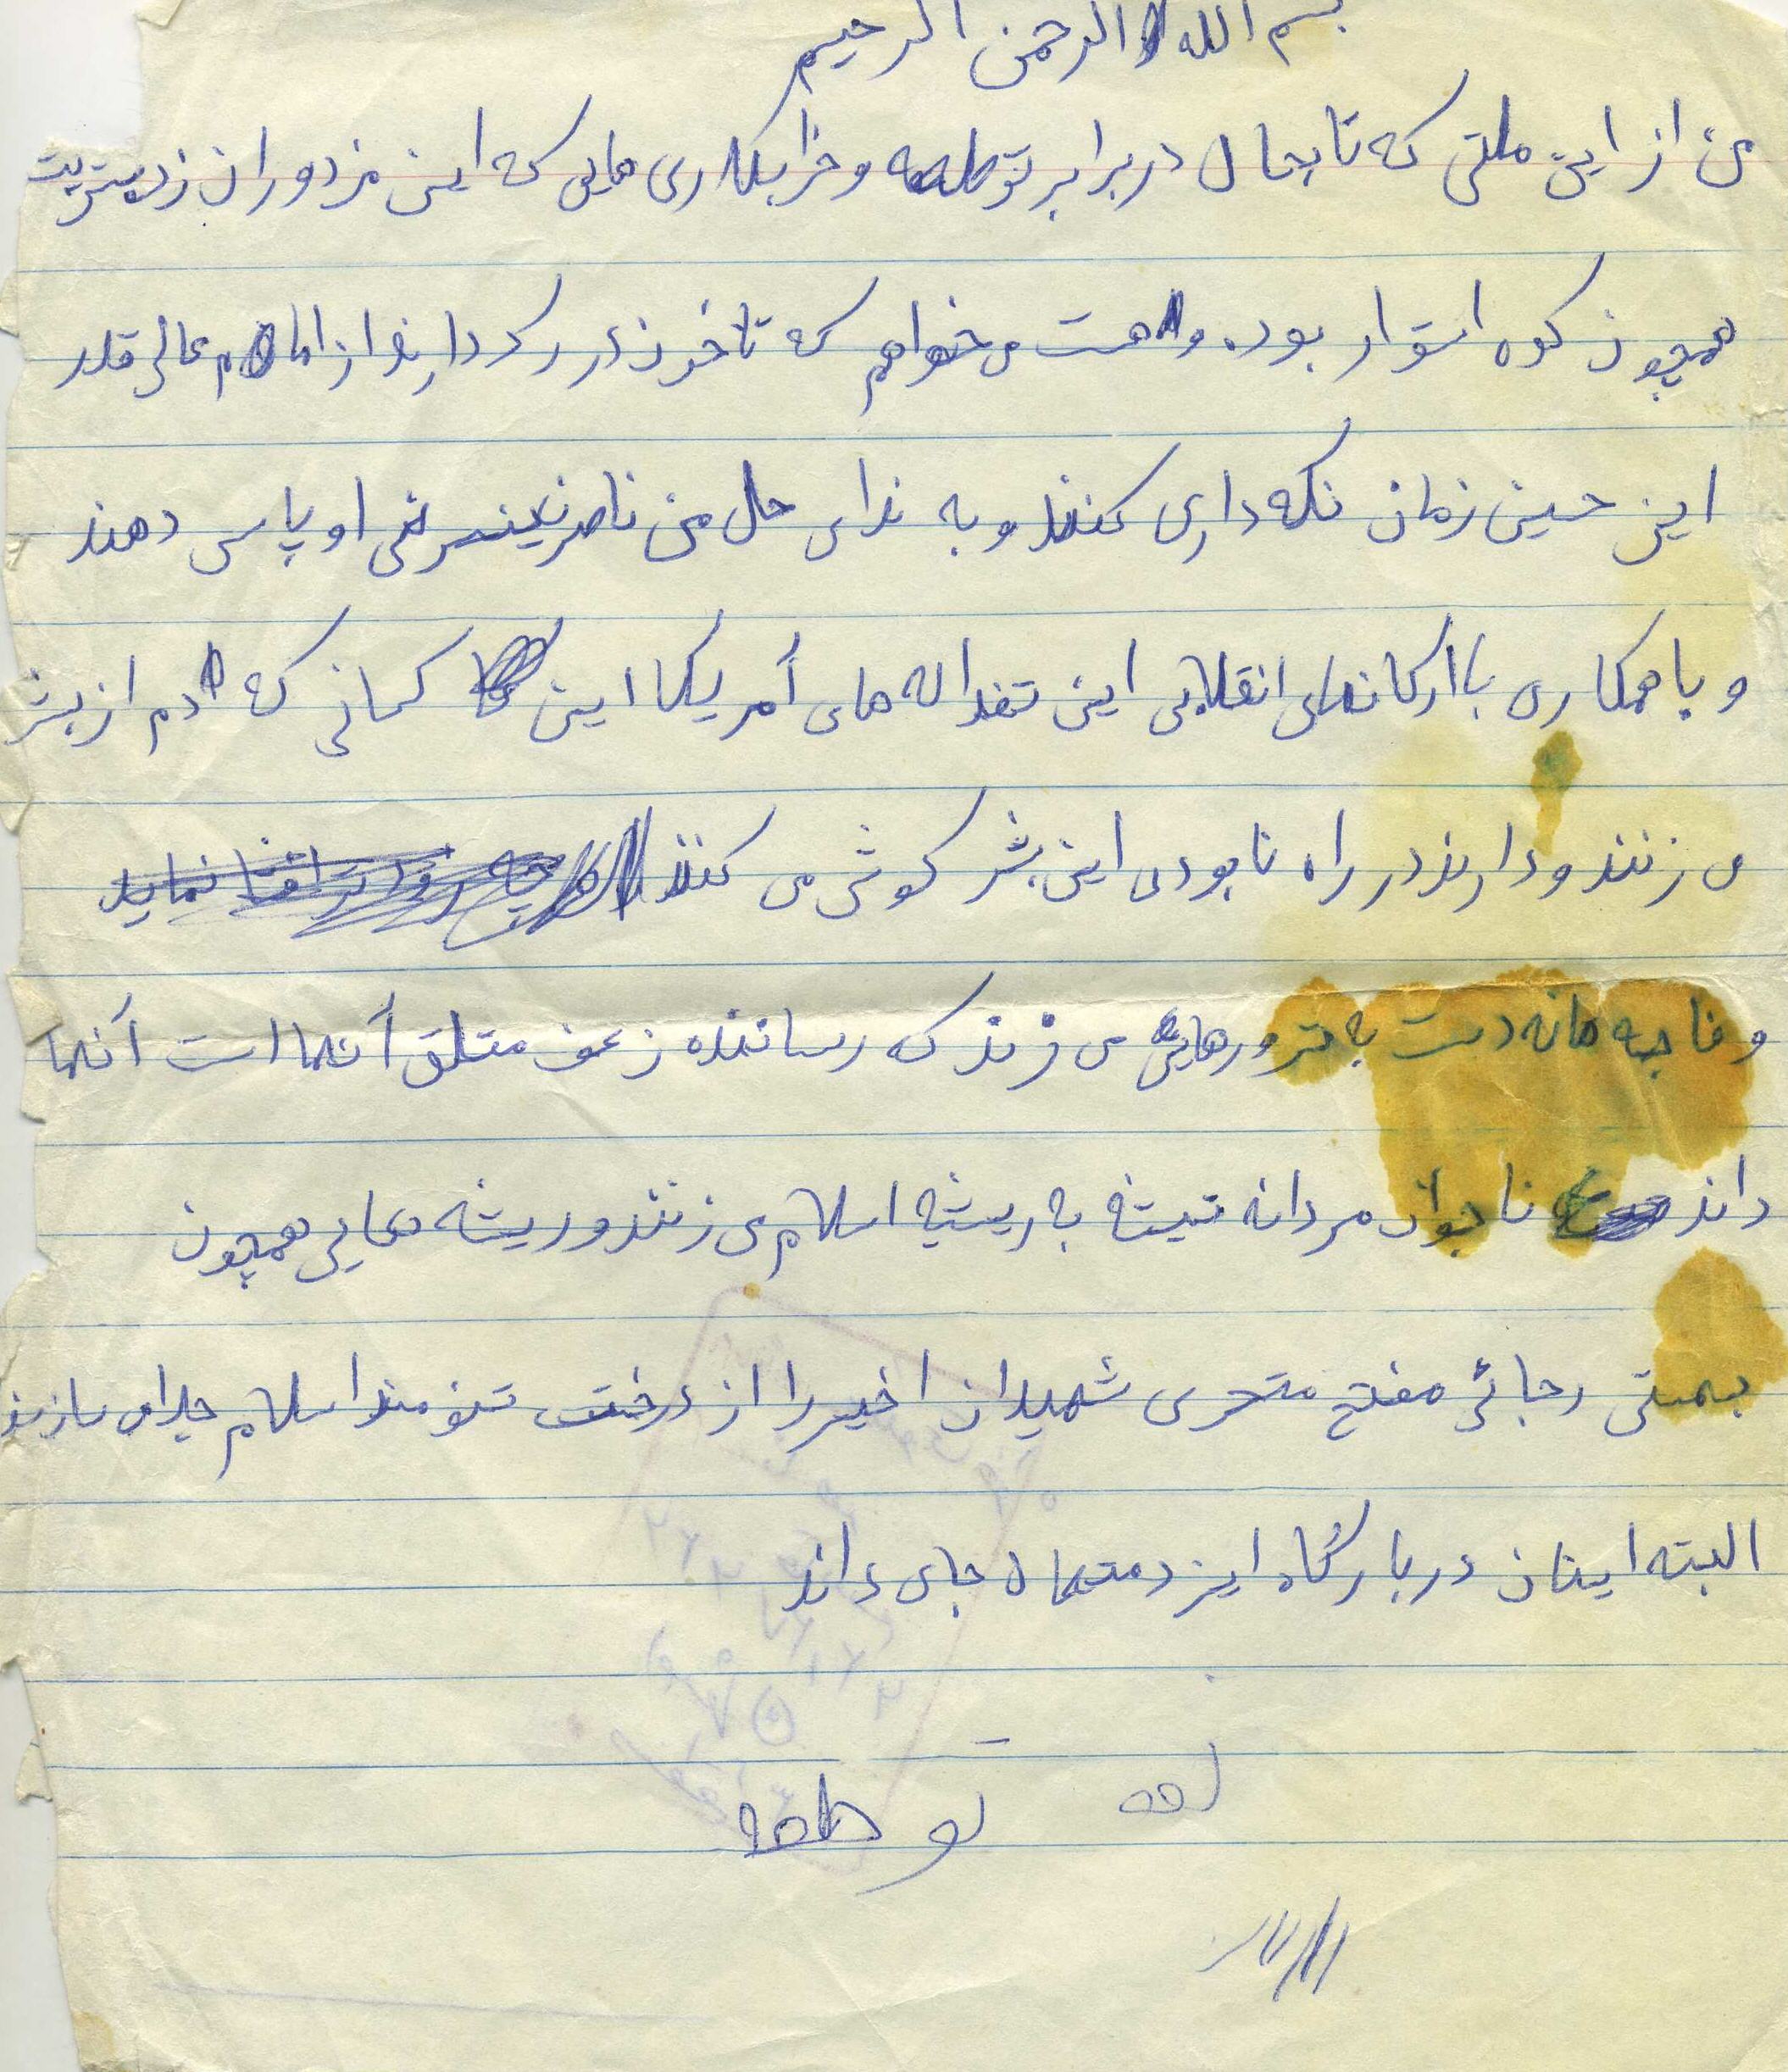 بسم الله الرحمن الرحیم
من از این ملتی که تا بحال در برابر توطعه و خرابکاری هایی که این مزدوران زدستی
همچون کوه استوار بود. و همت می خواهم که تا خون در رگ دارند از امام عالی قدر
این حسین زمان نگه داری کنند و به ندای هل من ناصر ینصرنی او پاسی دهند
و با همکاری با ارکانهای انقلابی این تفداله های آمریکا این کسانی که دم از بشر
می زنند و دارند در راه نابودی این بشر کوشش می کنند
وفاجبه هانه دست به ترورهایی می زند که رساننده زعف متلق آنها است آنها
داند نا جوان مردانه تیشه به ریشه اسلام می زنند و ریشه هایی همچون
بهشتی رجائی مفتح متحری شهیدان اخیر را از درخت تنومند اسلام جدای سازند
البته اینان در بارگاه ایزد متعال جای داند